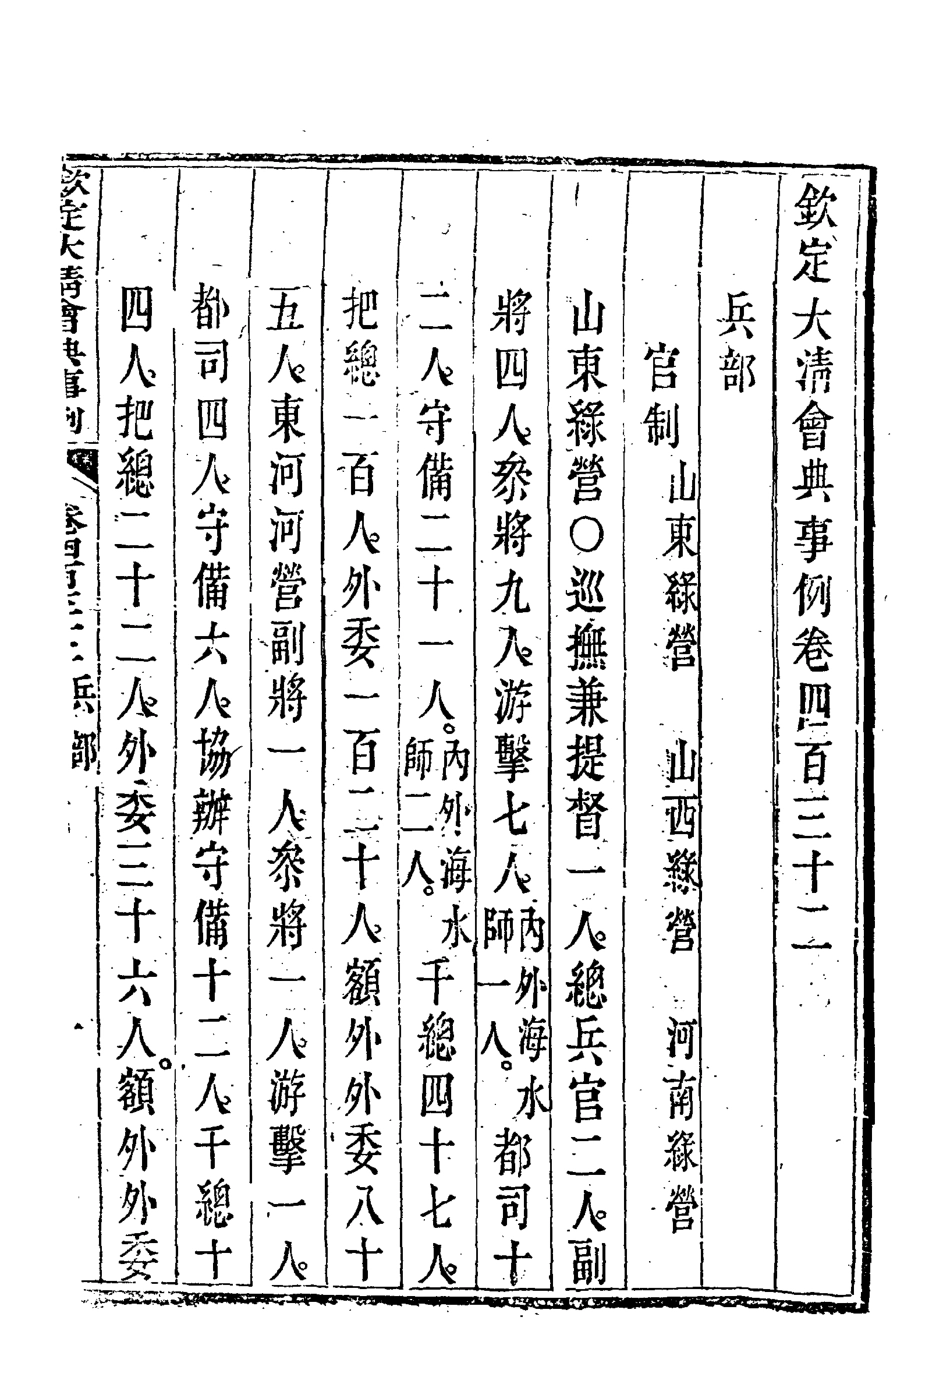 欽定大清會典事例卷四百三十二
兵部
官制 山東綠營 山西綠營 河南綠營
山東綠營〇巡撫兼提督一人。總兵官二人。副
將四人。叅將九人。游擊七人。內外海水師一人。都司十
二人。守備二十一人。內外海水師二人。千總四十七人。
把總一百人。外委一百二十人。額外外委八十
五人。東河河營副將一人。叅將一人。游擊一人。
都司四人。守備六人。協辦守備十二人。千總十
四人。把總二十二人。外委三十六人。額外外委
欽定大清會典事例 卷四百三十二 兵部 一